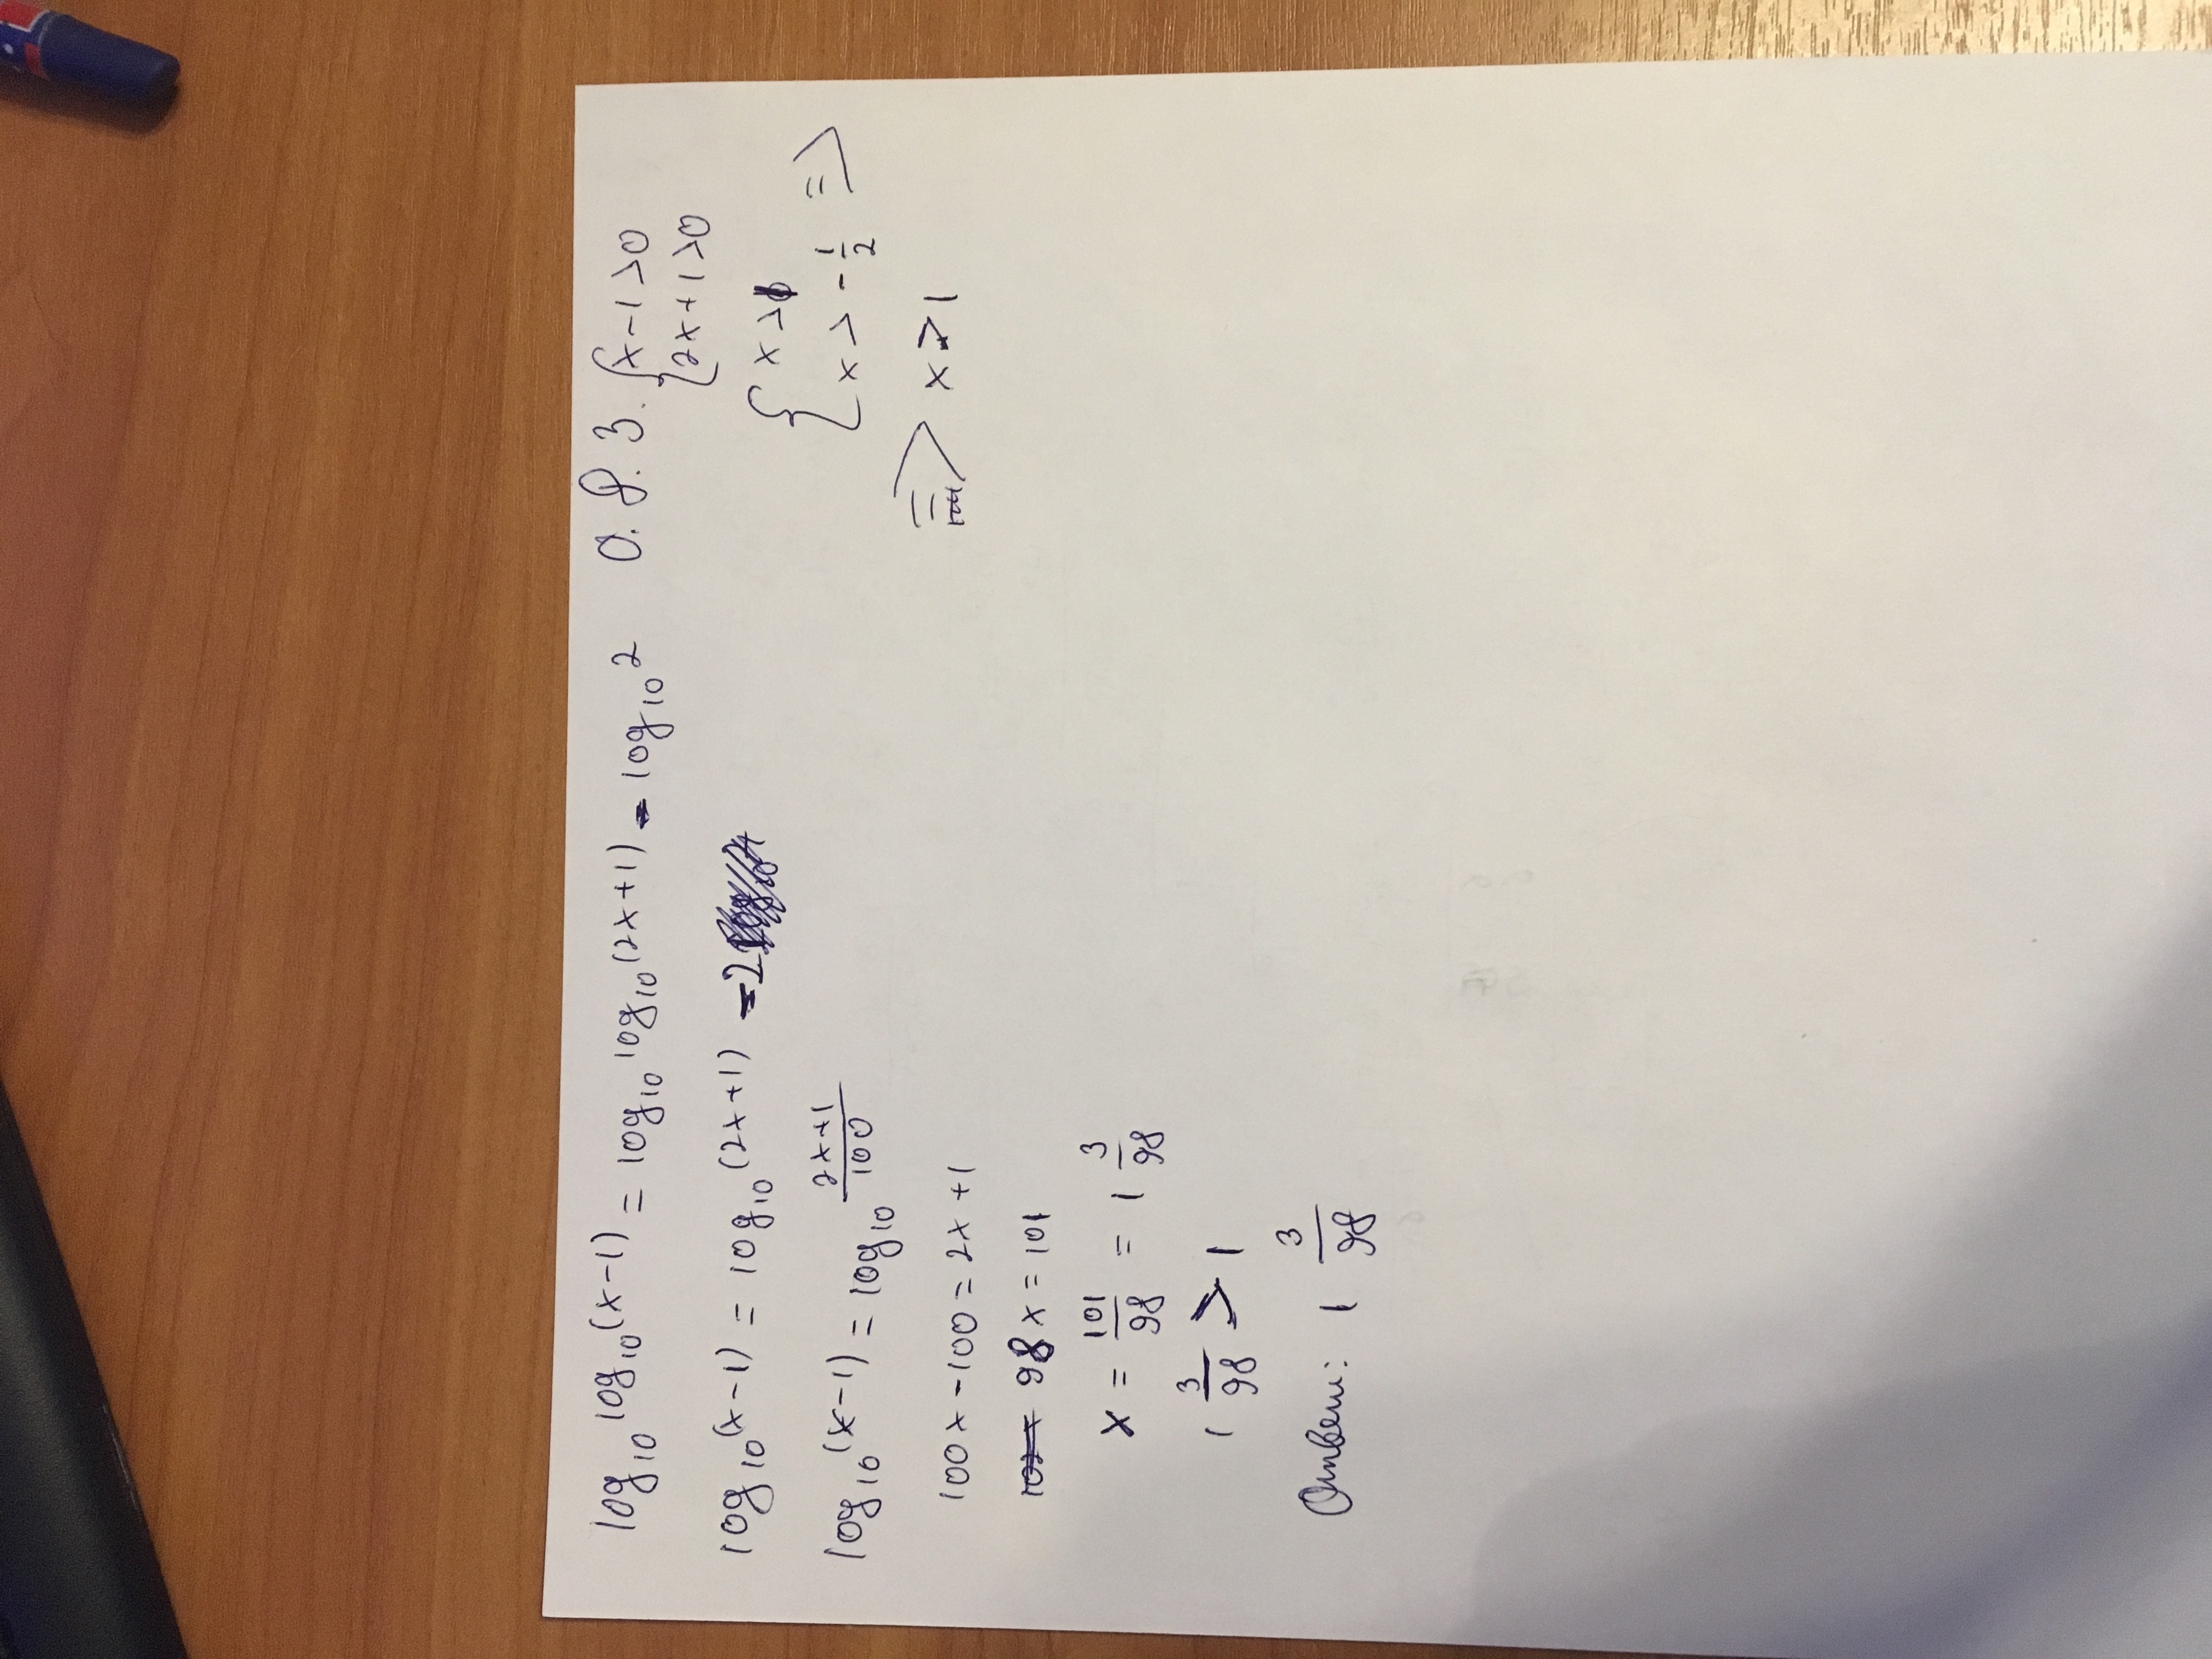 log₁₀ log₁₀(x-1) = log₁₀ log₁₀(2x+1) - log₁₀ 2
О.Д.З. { x-1>0
2x+1>0
{ x>1
x > -1/2 =>
=> x>1
log₁₀(x-1) = log₁₀(2x+1) - 2
log₁₀(x-1) = log₁₀ (2x+1)/100
100x - 100 = 2x + 1
98x = 101
x = 101/98 = 1 3/98
1 3/98 > 1
Ответ: 1 3/98